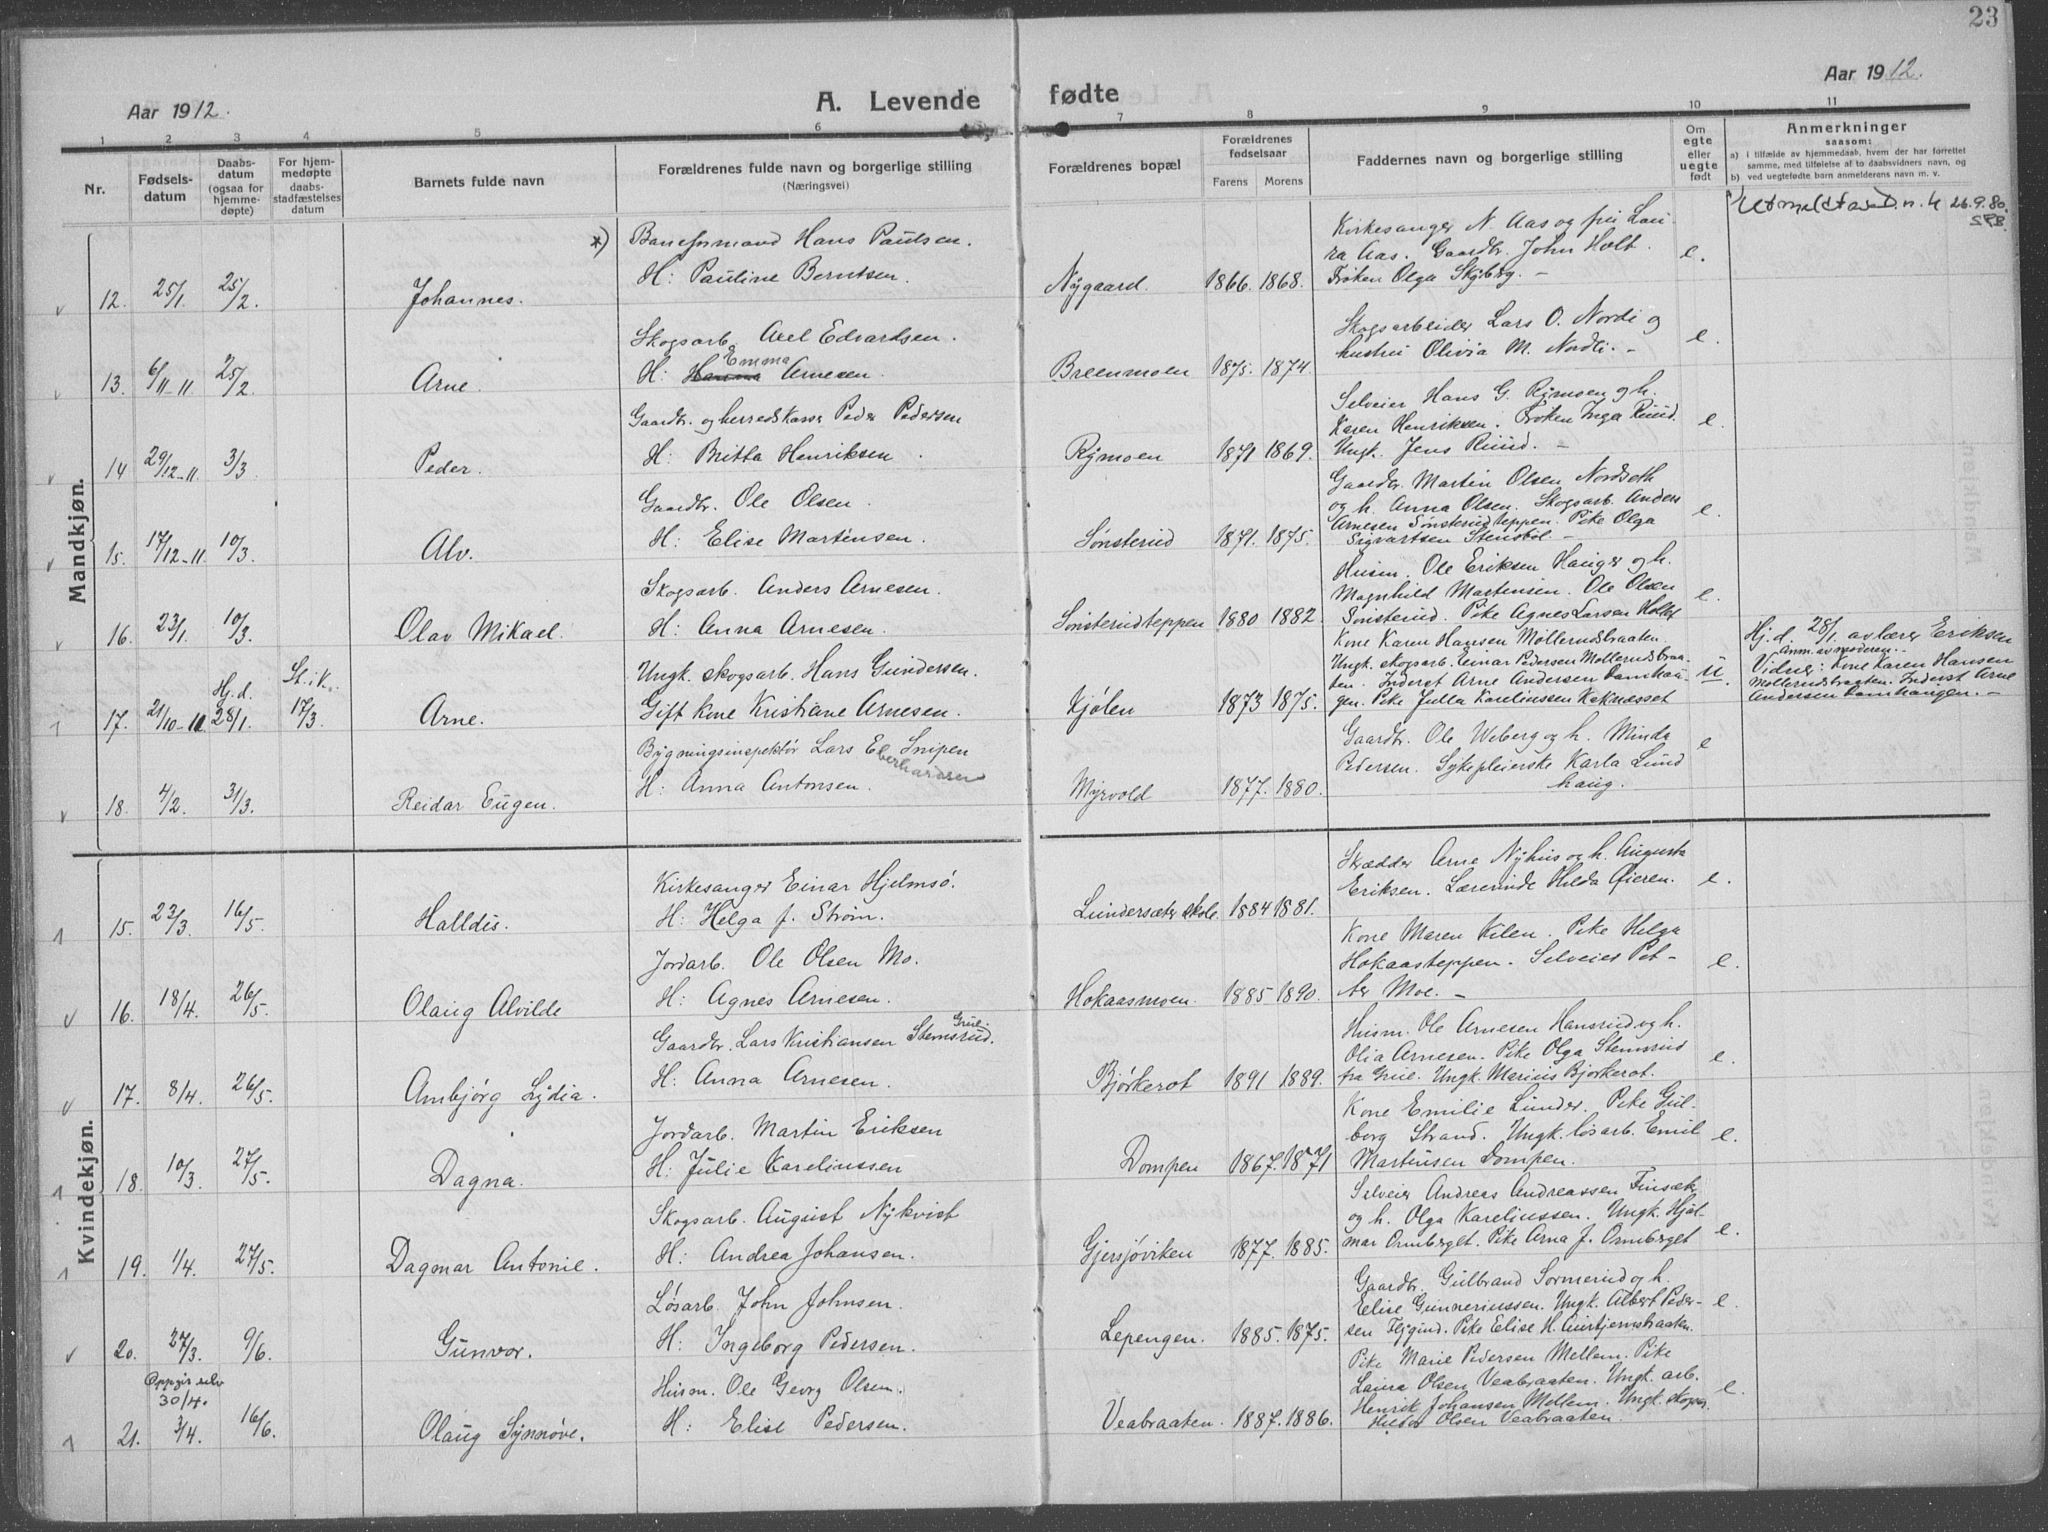 23
Aar 1912.
A. Levende fødte
Aar 1912.
1 2 3 4 5 6 7 8 9 10 11
Nr.
Fødsels-
datum
Daabs-
datum
(ogsaa for
hjemme-
døpte)
For hjem-
medøpte
daabs-
stadfæstelses
datum
Barnets fulde navn
Forældrenes fulde navn og borgerlige stilling
(Næringsvei)
Forældrenes bopæl
Forældrenes
fødselsaar
Farens Morens
Faddernes navn og borgerlige stilling
Om
egte
eller
uegte
født
Anmerkninger
saasom:
a) i tilfælde av hjemmedaab, hvem der har forrettet
samme, med tilføielse af to daabsvidners navn, og
b) ved uegtefødte barn anmelderens navn m. v.
Mandkjøn.
12. 25/1. 25/2. Johannes.
*) Baneformand Hans Paulsen.
H: Pauline Berntsen.
Nygaard. 1866. 1868.
Kirkesanger N. Aas og fru Lau-
ra Aas. Gaardbr. John Holt.
Frøken Olga Skyberg. –
e.
26.9.80.
13. 6/11-11. 25/2. Arne.
Skogsarb. Axel Edvardsen.
Emma
H: Hanna Arnesen.
Breenmoen 1875. 1874.
Skogsarbeider Lars O. Nordli og
hustru Olivia M. Nordli. –
e.
14 29/12-11. 3/3. Peder.
Gaardbr. og herredskasse Peder Pedersen
H: Britta Henriksen.
Rymoen 1871 1869.
Selveier Hans G. Rymoen og h.
Karen Henriksen. Frøken Inga Ruud.
Ungk. Jens Ruud. –
e.
15. 17/12-11. 10/3. Alv.
Gaardbr. Ole Olsen.
H: Elise Martinsen.
Sønsterud 1871. 1875.
Gaardbr. Martin Olsen Nordseth
og h. Anna Olsen. Skogsarb. Anders
Arnesen Sønsterudteppen. Pike Olga
Sigvartsen Stensbøl –
e.
16. 23/1. 10/3. Olav Mikael.
Skogsarb. Anders Arnesen.
H: Anna Arnesen.
Sønsterudteppen 1880 1882.
Husm. Ole Eriksen Hauger og h.
Magnhild Martinsen. Ole Olsen
Sønsterud. Pike Agnes Larsen
e.
17. 21/10-11. Hj.d. 28/1. St. i K. 17/3. Arne.
Ungk. skogsarb. Hans Gundersen.
Gift kone Kristiane Arnesen.
Kjølen 1873 1875.
Kone Karen Hansen Møllerudsbraaten.
Ungk. skogsarb. Einar Pedersen Møllerudsbraa-
ten. Inderst Arne Andersen Damhau-
gen. Pike Julla Karelinssen Kaknæsset
u.
Hj.d. 28/1. av lærer Eriksen
Anm. av moderen. –
Vidner: Kone Karen Hansen
Møllerudsbraaten. Inderst Arne
Andersen Damhaugen. –
18. 4/2. 31/3. Reidar Eugen.
Bygningsinspektør Lars E. Snipen
Eberhardsen
H: Anna Antonsen.
Myrvold 1877. 1880.
Gaardbr. Ole Weberg og h. Minda
Pedersen. Sykepleierske Karla Lund
haug.
e
Kvindekjøn.
15. 23/3. 16/5. Halldis.
Kirkesanger Einar Hjelmsø.
H: Helga f. Strøm.
Lundersæter skole. 1884 1881.
Skrædder Arne Nyhus og h. Augusta
Eriksen. Lærerinde Hilda Gieren.
e.
16. 18/4. 26/5. Olaug Alvilde
Jordarb. Ole Olsen Mo.
H: Agnes Arnesen.
Hokaasmoen. 1885 1890.
Kone Maren Kilen. Pike Helga
Hokaasteppen. Selveier Pet-
ter Moe. –
e.
17. 8/4. 26/5. Ambjørg Lydia.
Grue.
Gaardbr. Lars Kristiansen Stemsrud.
H: Anna Arnesen.
Bjørkerot 1891 1889.
Husm. Ole Arnesen Hansrud og h.
Olia Arnesen. Pike Olga Stemsrud
fra Grue. Ungk. Marius Bjørkerot.
e.
18. 10/3. 27/5. Dagna.
Jordarb. Martin Eriksen
H: Julie Karelinssen
Dompen 1867. 1871
Kone Emilie Lunder. Pike Gul-
borg Strand. Ungk. løsarb. Emil
Martinsen Dompen.
e.
19. 1/4. 27/5. Dagmar Antonie.
Skogsarb. August Nykvist
H: Andrea Johansen.
Gjersjøviken 1877. 1885.
Selveier Andreas Andreassen Finsæter
og h. Olga Karelinssen. Ungk. Hjal-
mar Ormberget. Pike Arna f. Ormberget
e.
20. 27/3. 9/6. Gunvor.
Løsarb. John Johnsen.
H: Ingeborg Pedersen.
Lepengen. 1885. 1875.
Gaardbr. Gulbrand Sormerud og h.
Eelise Gunneriussen. Ungk. Albert Peder-
sen Flygind. Pike Elise H.
e.
Oppgir selv
30/4.
21. 3/4. 16/6. Olaug Synnøve.
Husm. Ole Georg Olsen.
H: Elise Pedersen.
Veabraaten. 1887. 1886.
Pike Marie Pedersen Mellem. Pike
Laura Olsen Veabraaten. Ungk. arb.
Henrik Johansen Mellem. Ungk. skogsar.
Olsen Veabraaten.
e.